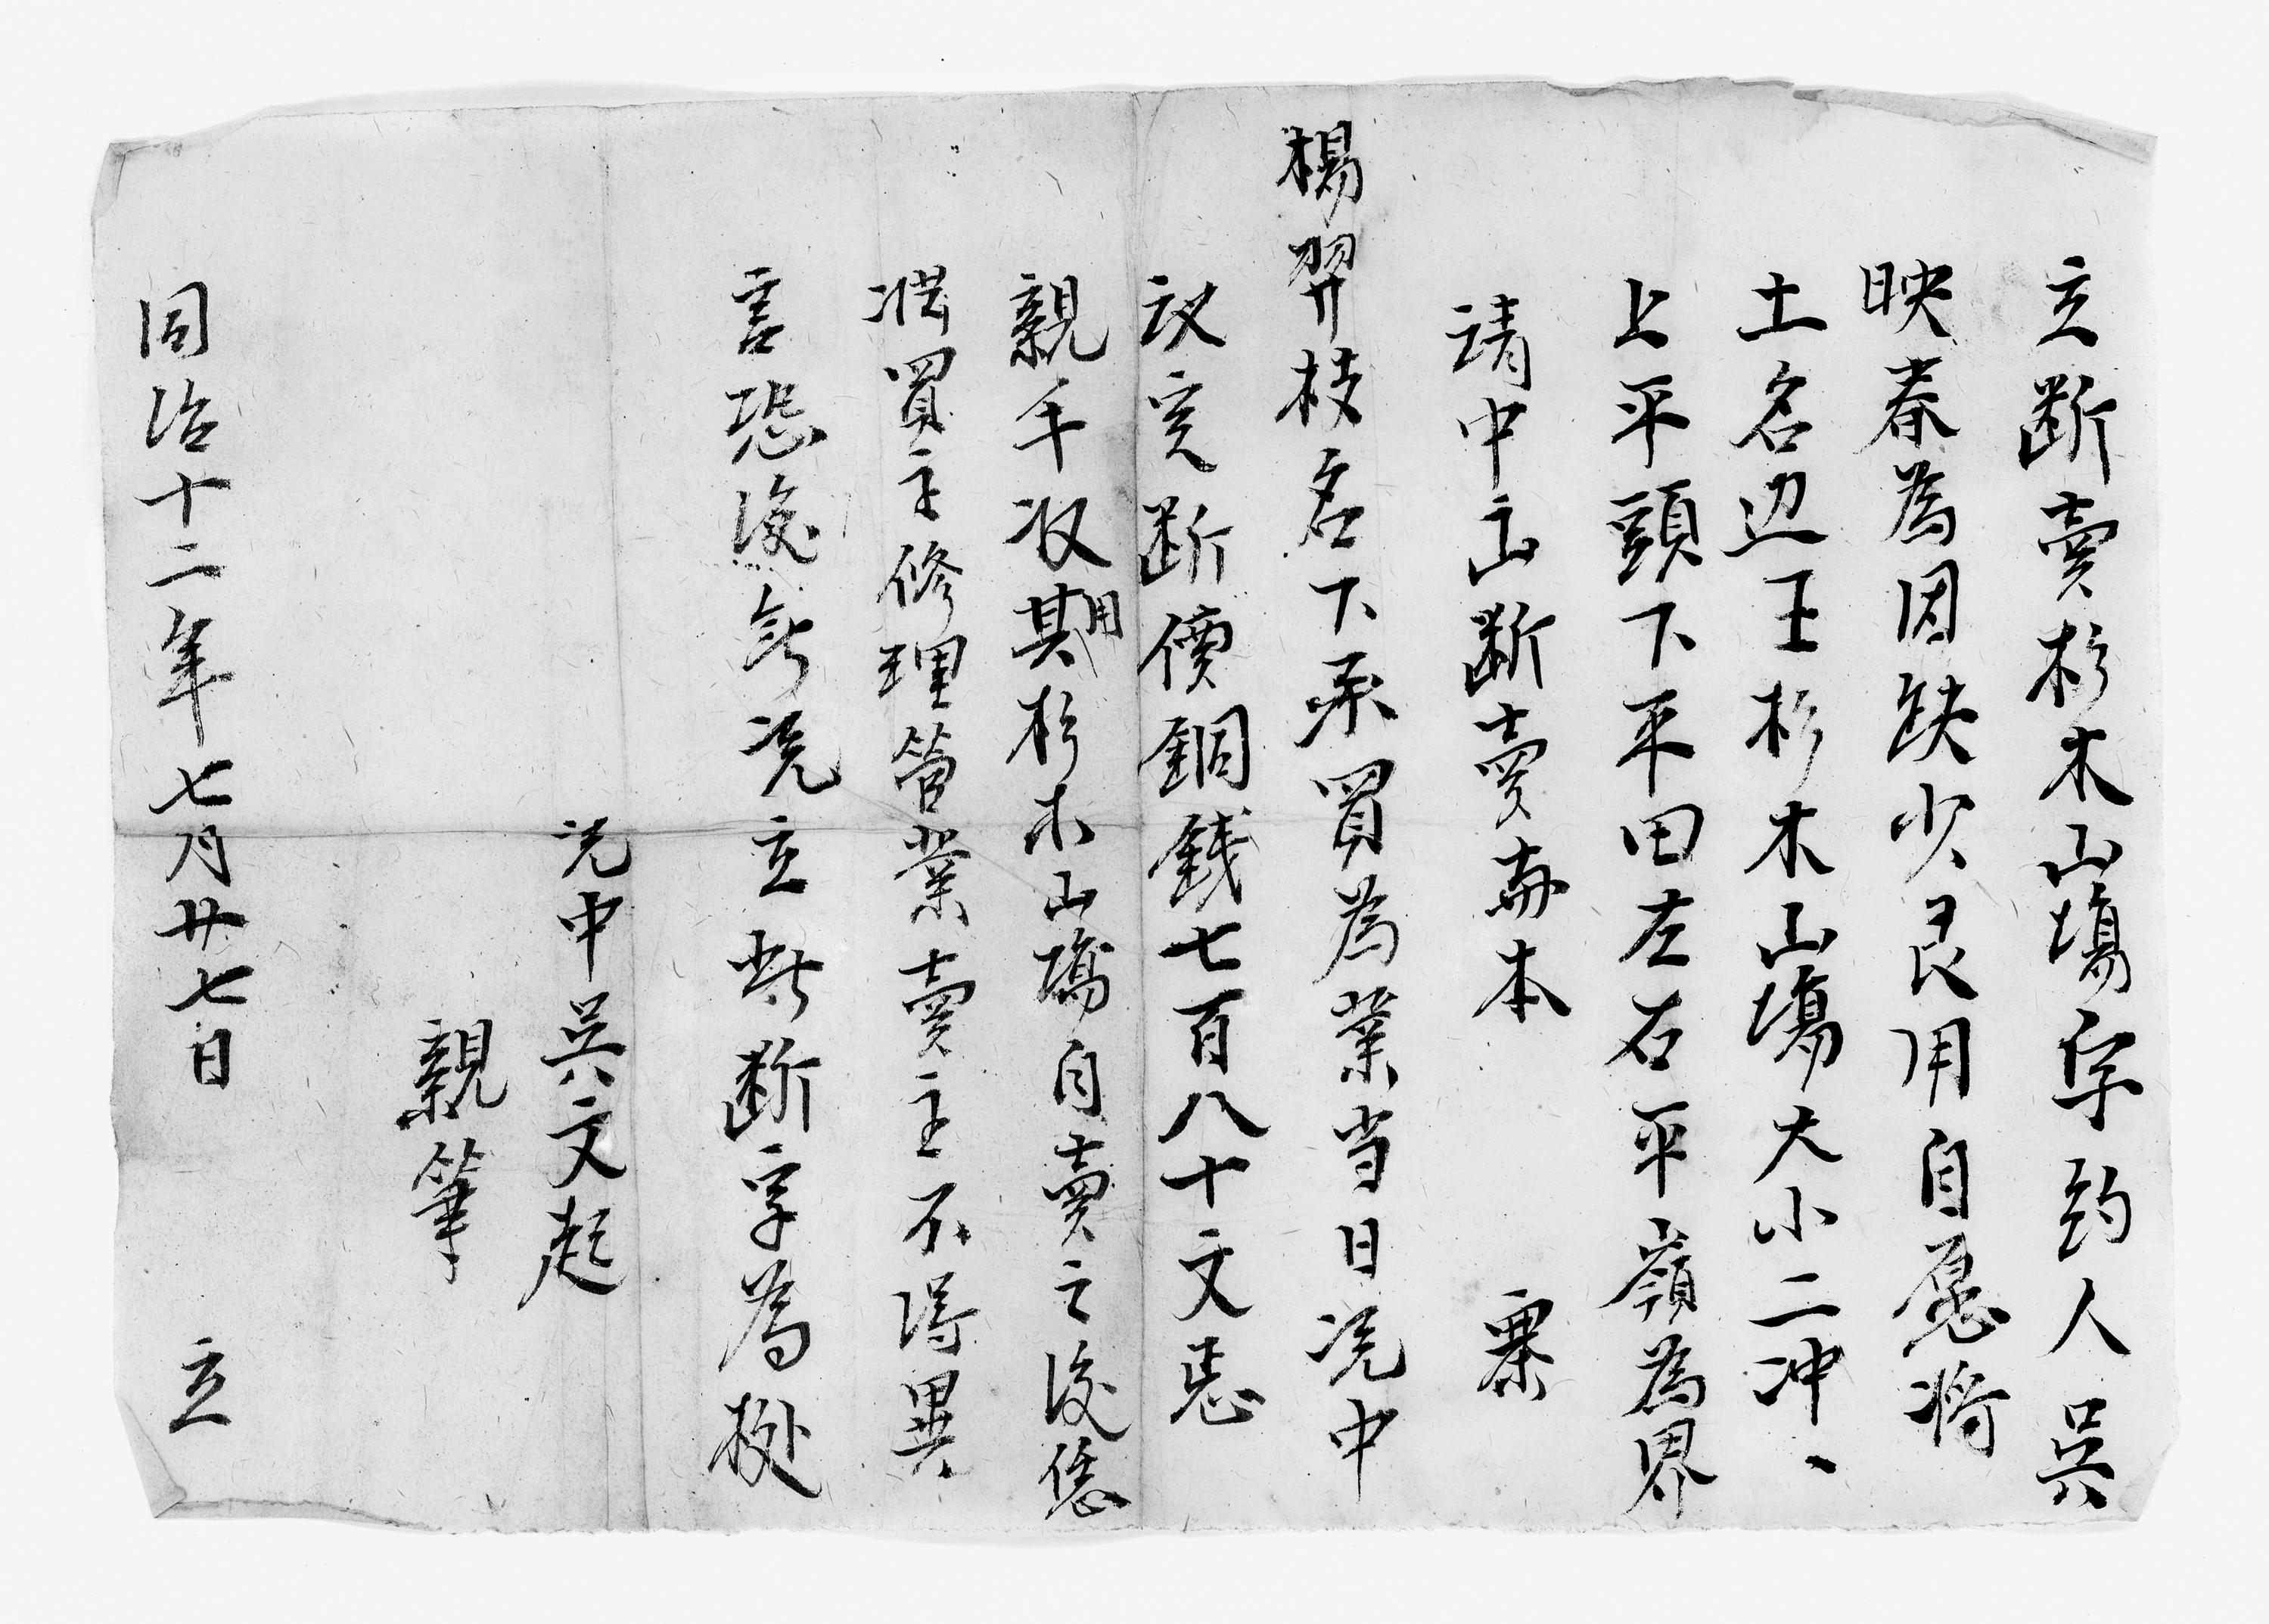 立断賣杉木山塲字約人吳
映春為因缺少艮用自愿将
土名边王杉木山塲大小二冲、
上平頭下平田左右平嶺為界
請中出断賣與本 寨
楊昇枝名下承買為業当日凭中
议定断價銅錢七百八十文悉
親手收用其杉木山塲自賣之後恁
凴買主修理管業賣主不得異
言恐後無凭立此断字為據
凭中吳文起
親筆
同治十二年七月廿七日 立